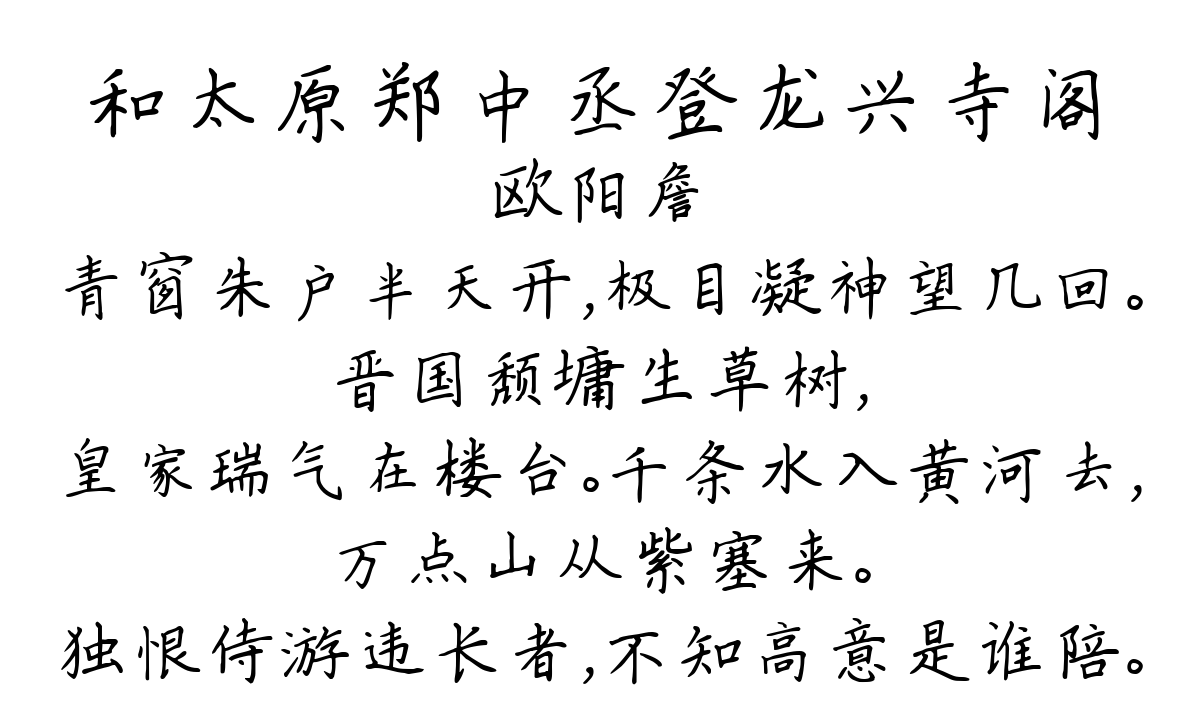 和太原郑中丞登龙兴寺阁
欧阳詹
青窗朱户半天开,极目凝神望几回。
晋国颓墉生草树,
皇家瑞气在楼台。千条水入黄河去,
万点山从紫塞来。
独恨侍游违长者,不知高意是谁陪。